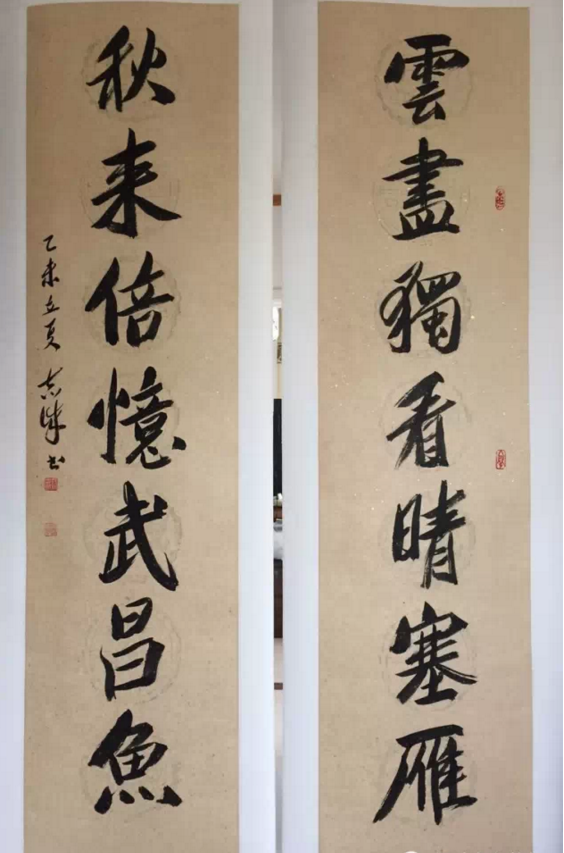 雲盡獨看晴塞雁
秋来倍憶武昌魚
乙未立夏 志诚书